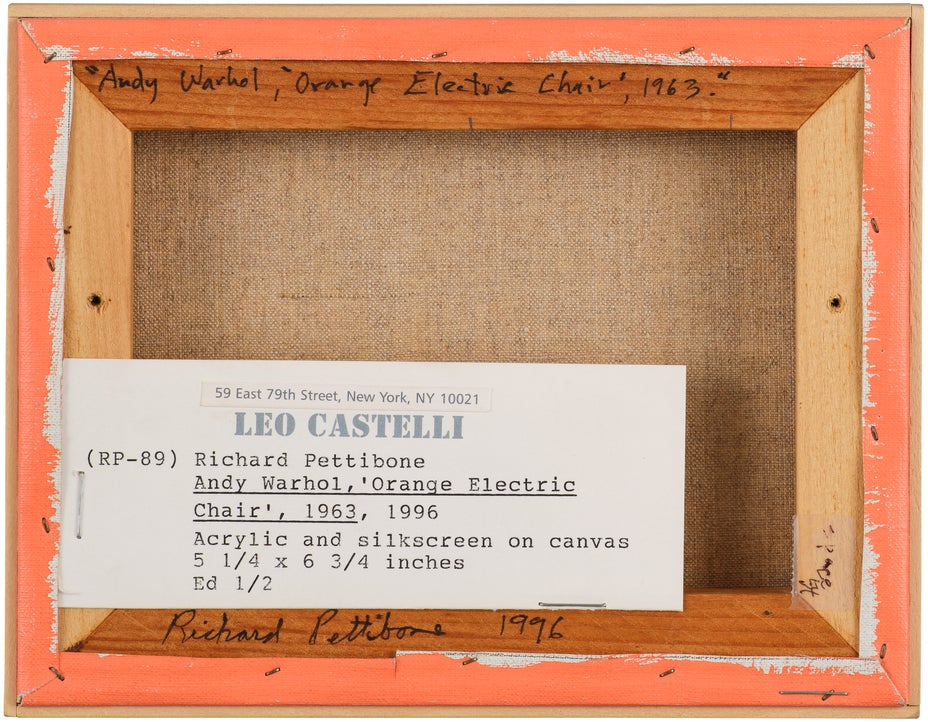 "Andy Warhol, 'Orange Electric Chair', 1963."
59 East 79th Street, New York, NY 10021
LEO CASTELLI
(RP-89) Richard Pettibone
Andy Warhol,'Orange Electric
Chair', 1963, 1996
Acrylic and silkscreen on canvas
5 1/4 x 6 3/4 inches
Ed 1/2
Richard Pettibone 1996